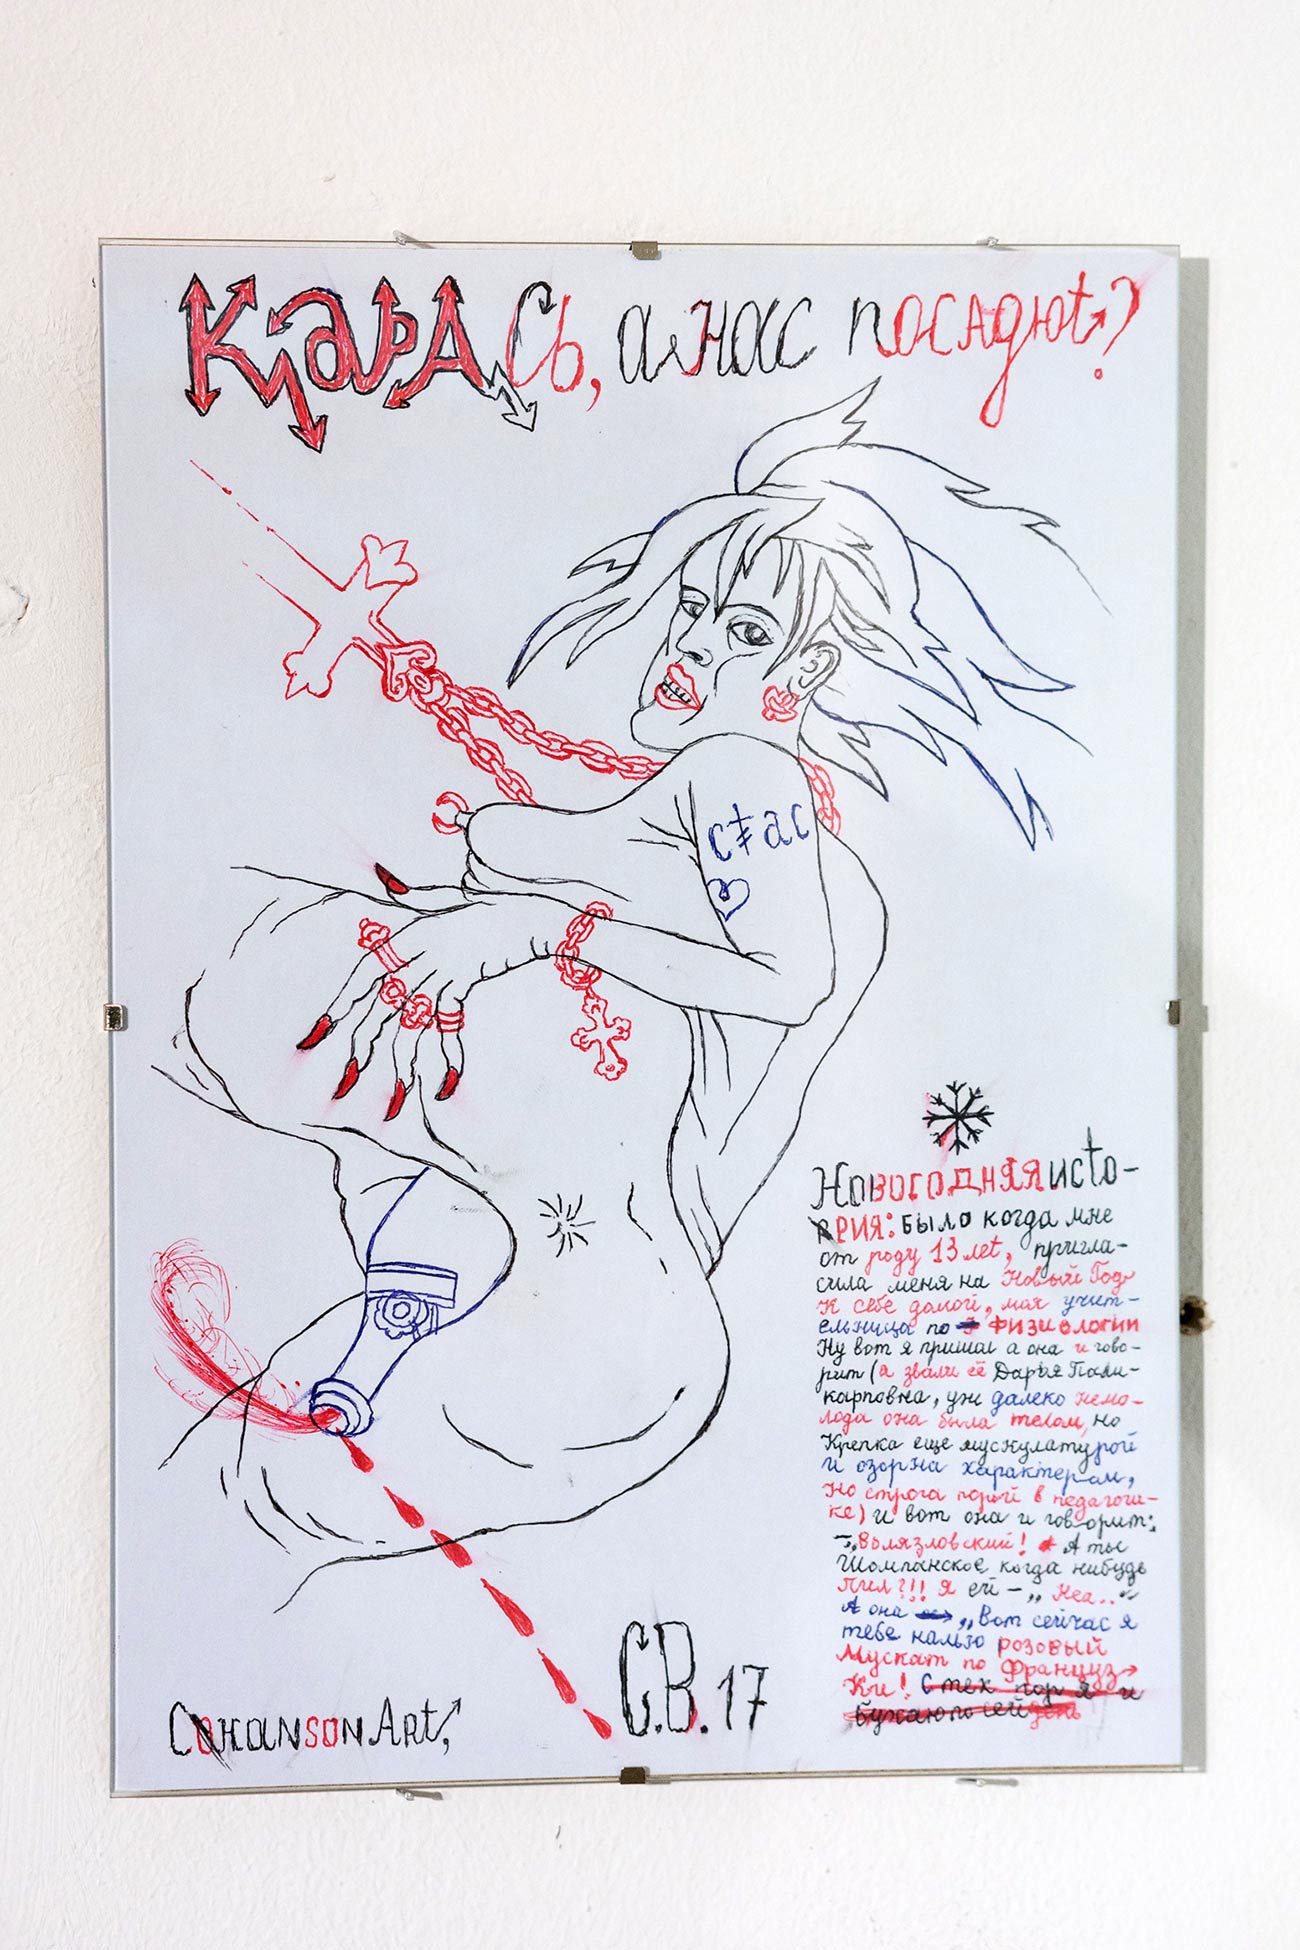 КарАСь, а нас посадют?
стас
Новогодняя исто-
рия: было когда мне
от роду 13 лет, пригла-
сила меня на Новый Год
к себе домой, моя учит-
ельница по физиологии
Ну вот я пришол а она и гово-
рит (а звали её Дарья Поли-
карповна, уж далеко немо-
лода она была телом, но
Крепка еще мускулатурой
и озорна характером,
но строга порой в педагоги-
ке) и вот она и говорит:
–„Волязловский! А ты
Шомпанское когда нибудь
Пил?!! Я ей –„Неа.."
А она „Вот сейчас я
тебе налью розовый
Мускат по Француз
Ки! С тех пор я и
бухаю по сей день
С.В.17
CoxansonArt,